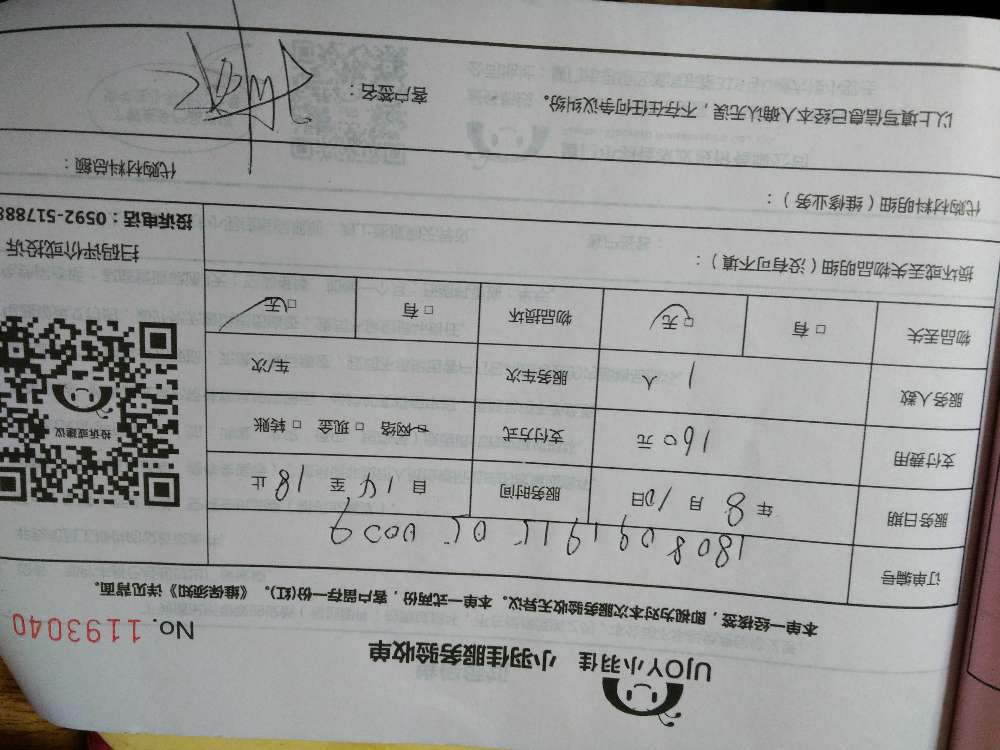 UJOY小羽佳 小羽佳服务验收单
No. 1193040
本单一经接签，即视为对本次服务验收无异议。本单一式两份，客户留存一份(红)。《维保须知》详见背面。
订单编号
服务日期 年 8 月 10 日 服务时间 自 14 至 18 止
支付费用 160 元 支付方式 □ 网络 □ 现金 □ 转账
服务人数 1 人 服务车次 车/次
物品丢失 □ 有 □ 无 物品损坏 □ 有 □ 无
投诉或建议
扫码评价或投诉
投诉电话：0592-517888
损坏或丢失物品明细（没有可不填）：
代购材料明细（维修业务）： 代购材料总额：
以上填写信息已经本人确认无误，不存在任何争议纠纷。 客户签名：